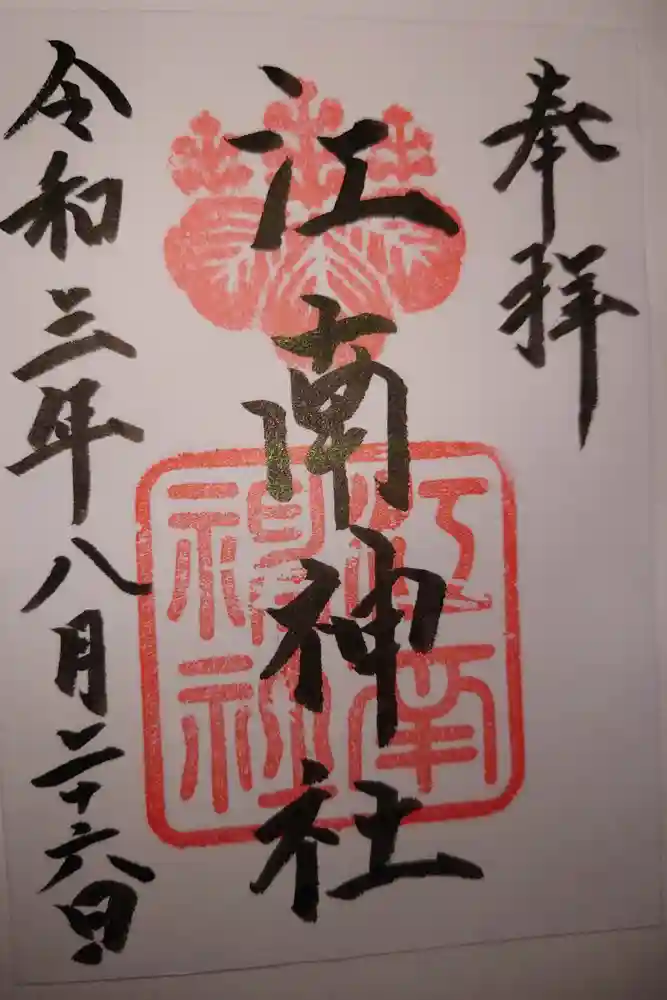 奉拝
江南神社
江南
神社
令和三年八月二十六日